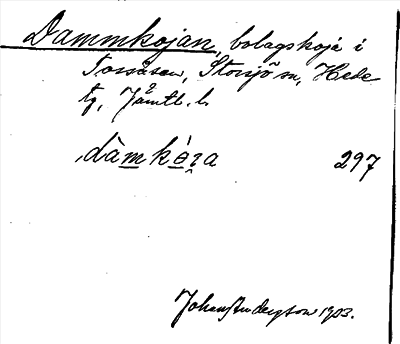 Dammkojan, bolagskoja i
Tossåsen, Storsjö sn, Hede
tg, Jämtl. l.
dàmkòɪ̯a 297
Johan Anderson 1903.